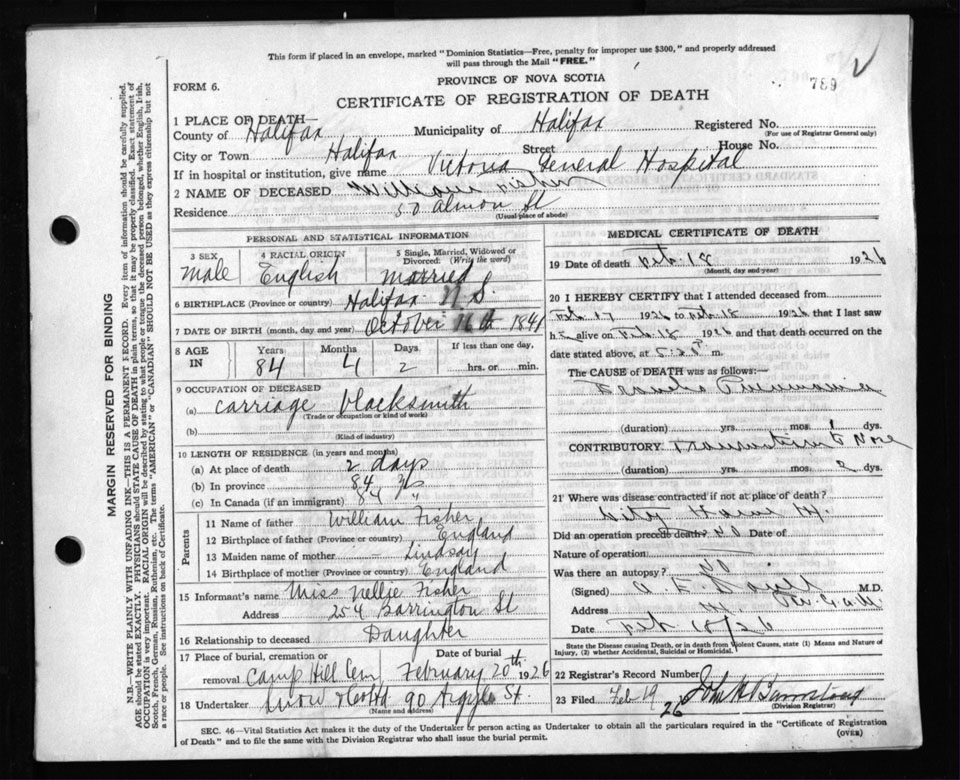 This form if placed in an envelope, marked "Dominion Statistics—Free, penalty for improper use $300," and properly addressed
will pass through the Mail "FREE."
789
PROVINCE OF NOVA SCOTIA
FORM 6.
CERTIFICATE OF REGISTRATION OF DEATH
1 PLACE OF DEATH—
County of Halifax Municipality of Halifax Registered No.
(For use of Registrar General only)
City or Town Halifax Street House No.
If in hospital or institution, give name Victoria General Hospital
2 NAME OF DECEASED William Fisher
Residence 50 Almon St
(Usual place of abode)
PERSONAL AND STATISTICAL INFORMATION
3 SEX Male
4 RACIAL ORIGIN English
5 Single, Married, Widowed or Divorced: (Write the word) Married
6 BIRTHPLACE (Province or country) Halifax N.S.
7 DATE OF BIRTH (month, day and year) October 16th 1841
8 AGE IN Years Months Days If less than one day,
84 4 2 hrs. or min.
9 OCCUPATION OF DECEASED
(a) Carriage Blacksmith
(Trade or occupation or kind of work)
(b)
(Kind of industry)
10 LENGTH OF RESIDENCE (in years and months)
(a) At place of death 2 days
(b) In province 84 yrs
(c) In Canada (if an immigrant) 84 "
Parents
11 Name of father William Fisher
12 Birthplace of father (Province or country) England
13 Maiden name of mother Lindsay
14 Birthplace of mother (Province or country) England
15 Informant's name Miss Nellie Fisher
Address 254 Barrington St
16 Relationship to deceased Daughter
17 Place of burial, cremation or removal Camp Hill Cem Date of burial February 20th 1926
18 Undertaker Snow & Co Ltd 90 Argyle St.
(Name and address)
MEDICAL CERTIFICATE OF DEATH
19 Date of death Feb. 18 1926
(Month, day and year)
20 I HEREBY CERTIFY that I attended deceased from
Feb 17 1926 to Feb 18 1926 that I last saw
h alive on Feb. 18 1926 and that death occurred on
date stated above, at m.
The CAUSE OF DEATH was as follows:—
Broncho Pneumonia
(duration) yrs. mos. 1 dys.
CONTRIBUTORY
(duration) yrs. mos. 2 dys.
21 Where was disease contracted if not at place of death?
City Home
Did an operation precede death? No
Nature of operation
Was there an autopsy? No
(Signed) M.D.
Address
Date Feb 18/26
State the Disease causing Death, or in death from Violent Causes, state (1) Means and Nature of
Injury, (2) whether Accidental, Suicidal or Homicidal.
22 Registrar's Record Number
23 Filed Feb 19 26 John
(Division Registrar)
SEC. 46—Vital Statistics Act makes it the duty of the Undertaker or person acting as Undertaker to obtain all the particulars required in the "Certificate of Registration
of Death" and to file the same with the Division Registrar who shall issue the burial permit. (OVER)
MARGIN RESERVED FOR BINDING
N.B.—WRITE PLAINLY WITH UNFADING INK—THIS IS A PERMANENT RECORD. Every item of information should be carefully supplied.
AGE should be stated EXACTLY. PHYSICIANS should STATE CAUSE OF DEATH in plain terms, so that it may be properly classified. Exact statement of
OCCUPATION is very important. RACIAL ORIGIN will be described by stating to what people or tongue the deceased person belonged, whether English, Irish,
Scotch, French, German, Russian, Ruthenian, etc. The terms "AMERICAN" or "CANADIAN" SHOULD NOT BE USED as they express citizenship but not
a race or people. See instructions on back of Certificate.